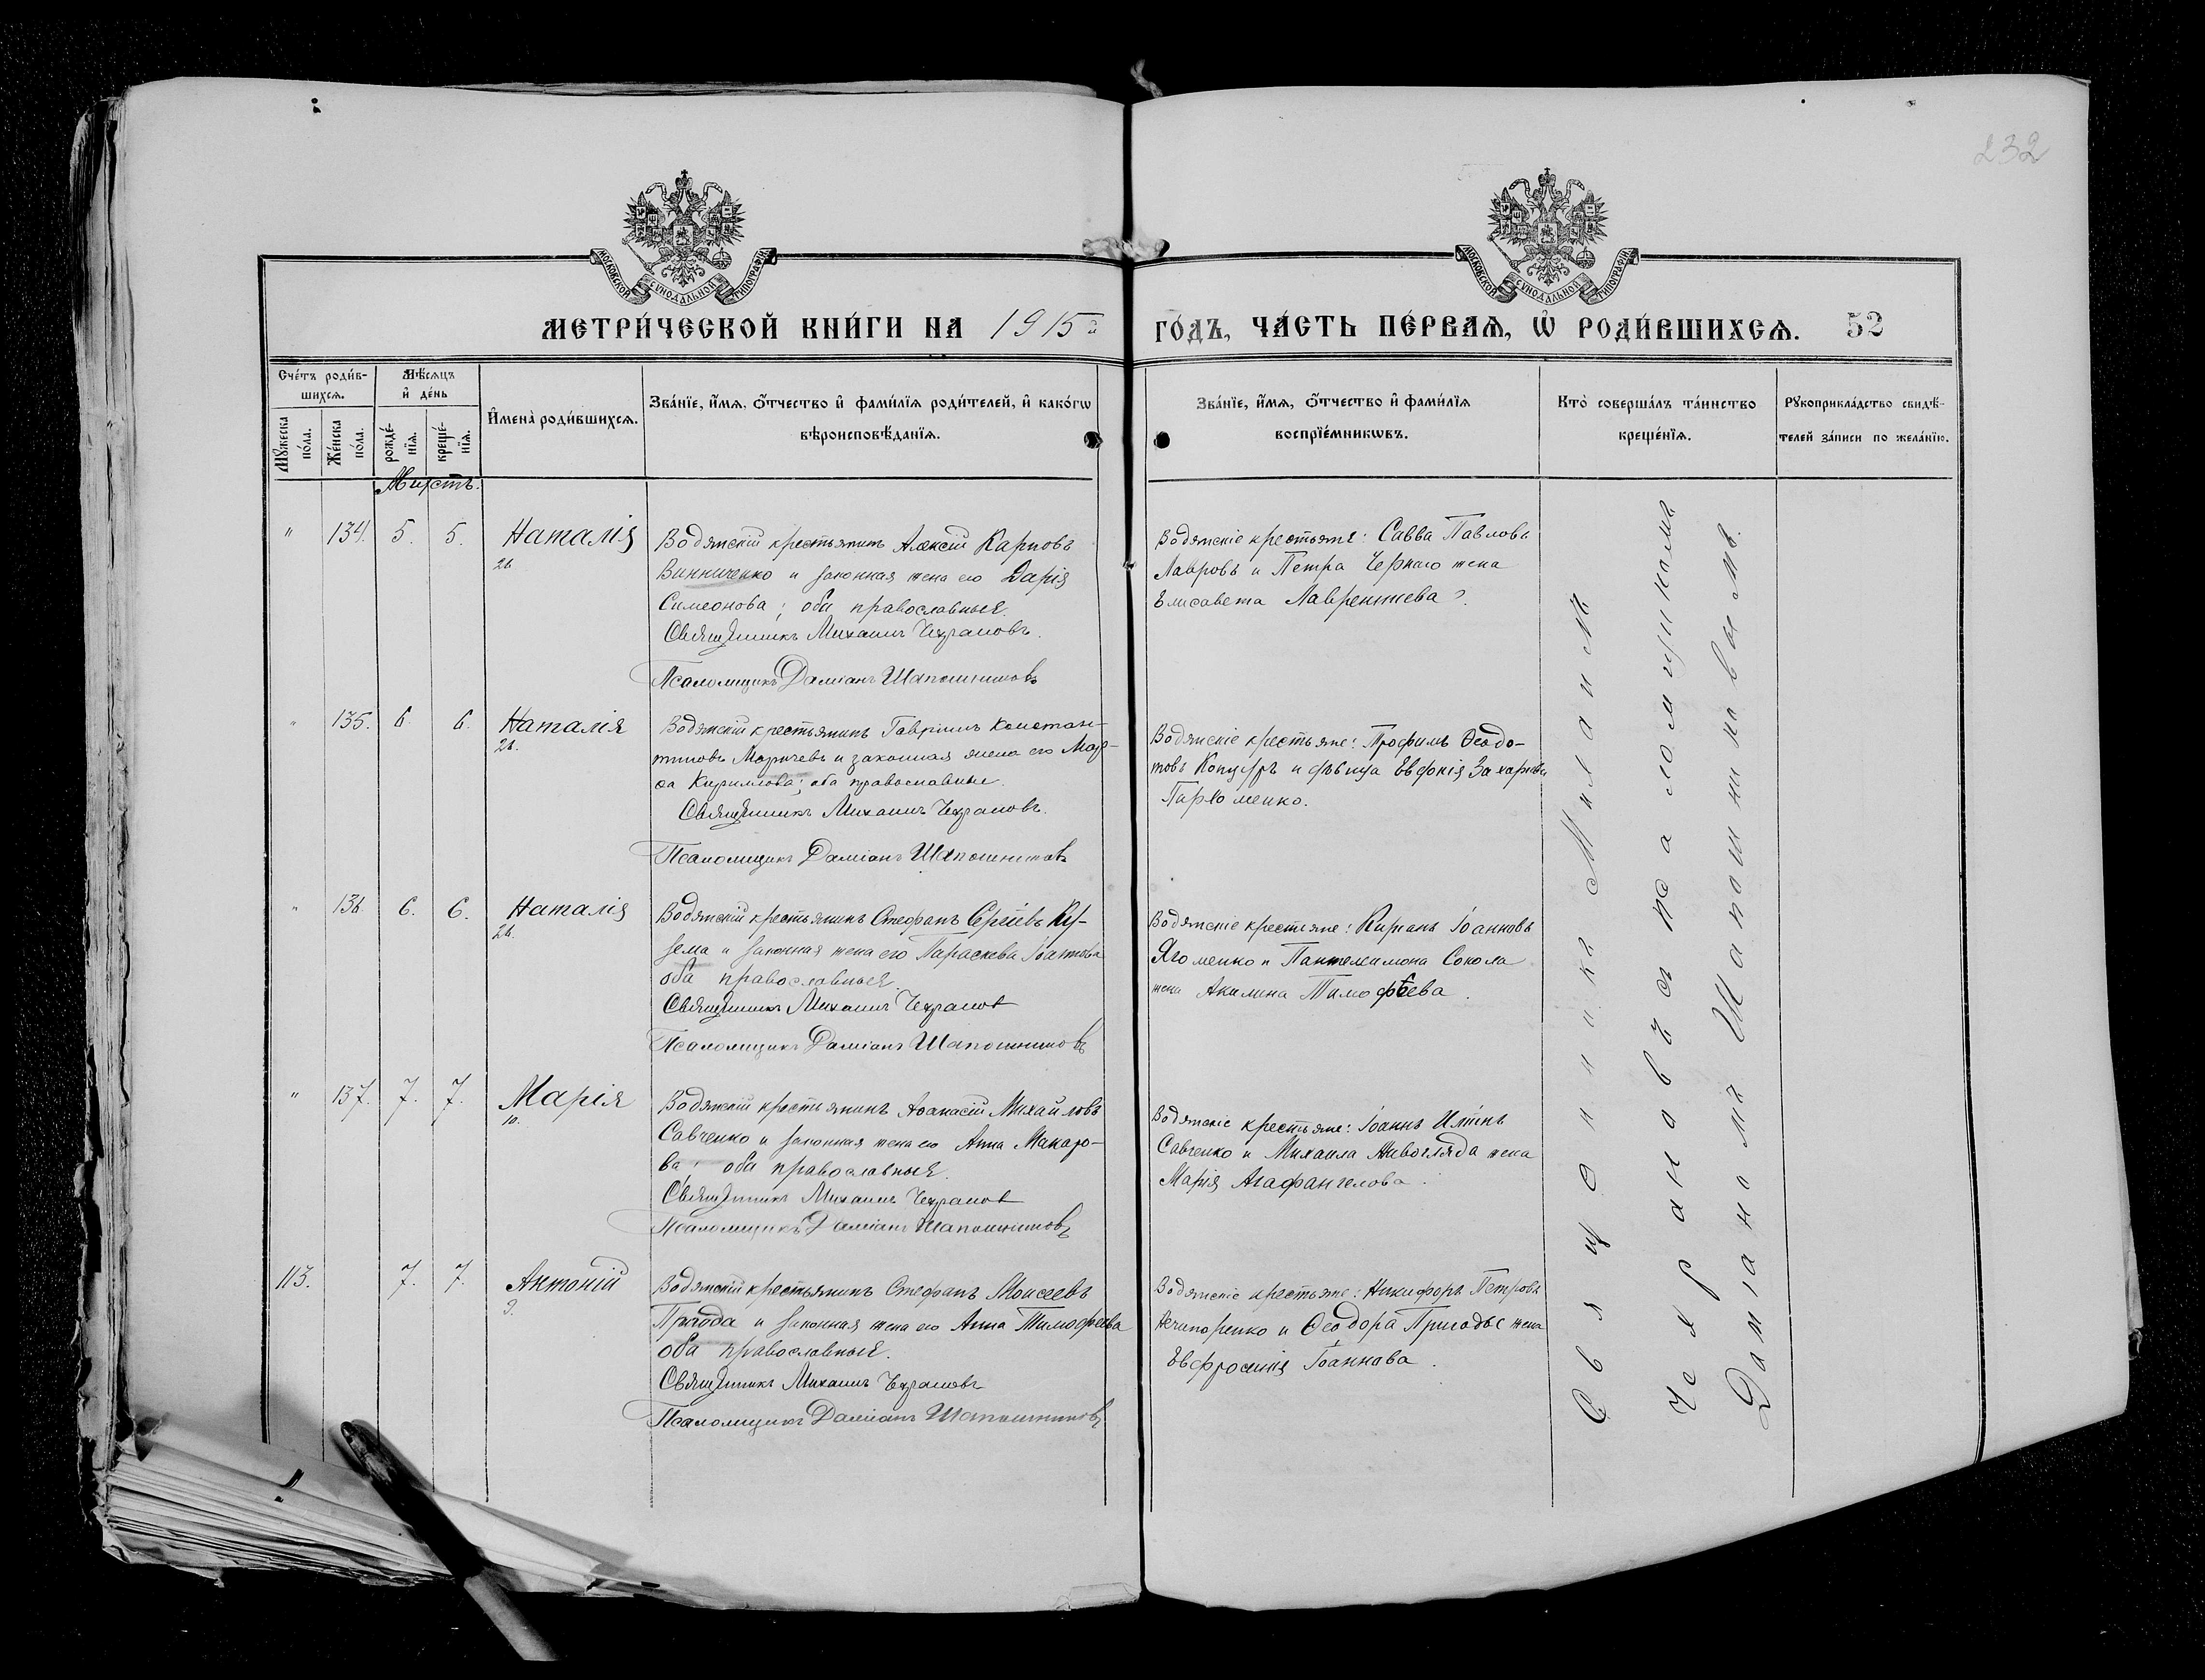 232
МОСКОВСКОЙ СУНОДАЛЬНОЙ ТИПОГРАФІИ
МОСКОВСКОЙ СУНОДАЛЬНОЙ ТИПОГРАФІИ
МЕТРИ́ЧЕСКОЙ КНИ́ГИ НА 1915й ГО́ДЪ, ЧА́СТЬ ПЕ́РВАѦ, Ѡ҆ РОДИ́ВШИХСѦ. 52
Сче́тъ роди́в-
шихсѧ.
Мꙋ́жеска по́ла.
Же́нска по́ла.
Мѣ́сѧцъ
и҆ де́нь
рожде́-
нїѧ.
креще́-
нїѧ.
И҆мена̀ роди́вшихсѧ.
Зва́нїе, и҆́мѧ, ѻ҆́тчество и҆ фами́лїѧ роди́телей, и҆ како́гѡ
вѣроисповѣ́данїѧ.
Зва́нїе, и҆́мѧ, ѻ҆́тчество и҆ фами́лїѧ
воспрїе́мникѡвъ.
Кто̀ соверша́лъ та́инство
креще́нїѧ.
Рꙋкоприкла́дство свидѣ́-
телей за́писи по жела́нїю.
Августъ.
" 134. 5. 5. Наталія
26.
Водянскій крестьянинъ Алексій Карповъ
Винниченко и законная жена его Дарія
Симеонова; оба православные.
Священникъ Михаилъ Чехрановъ.
Псаломщикъ Даміанъ Шапошниковъ
Водянскіе крестьяне: Савва Павловъ
Лавровъ и Петра Чернаго жена
Елисавета Лаврентьева.
" 135. 6. 6. Наталія
26.
Водянскій крестьянинъ Гавріилъ Констан-
тиновъ Маричевъ и законная жена его Мар-
ѳа Кириллова; оба православные.
Священникъ Михаилъ Чехрановъ.
Псаломщикъ Даміанъ Шапошниковъ
Водянскіе крестьяне: Трофимъ Ѳеодо-
товъ и дѣвица Захаріева
Пархоменко.
" 136 6. 6. Наталія
26.
Водянскій крестьянинъ Стефанъ Сергіевъ Ку-
зема и законная жена его Параскева Іоаннова
оба православные.
Священникъ Михаилъ Чехрановъ
Псаломщикъ Даміанъ Шапошниковъ
Водянскіе крестьяне: Киріанъ Іоанновъ
Ягоменко и Пантелеимона Сокола
жена Акилина Тимофѣева.
" 137. 7. 7. Марія
10.
Водянскій крестьянинъ Аѳанасій Михайловъ
Савченко и законная жена его Анна Макаро-
ва; оба православные.
Священникъ Михаилъ Чехрановъ
Псаломщикъ Даміанъ Шапошниковъ
Водянскіе крестьяне: Іоаннъ Ильинъ
Савченко и Михаила Живогляда жена
Марія Агафангелова.
113. 7. 7. Антоній
9.
Водянскій крестьянинъ Стефанъ Моисеевъ
Пригода и законная жена его Анна Тимофеева
оба православные.
Священникъ Михаилъ Чехрановъ
Псаломщикъ Даміанъ Шапошниковъ
Водянскіе крестьяне: Никифоръ Петровъ
и Ѳеодора Пригоды жена
Евфросинія Іоаннова.
Священникъ Михаилъ
Чехрановъ съ псаломщикомъ
Даміаномъ Шапошниковымъ.